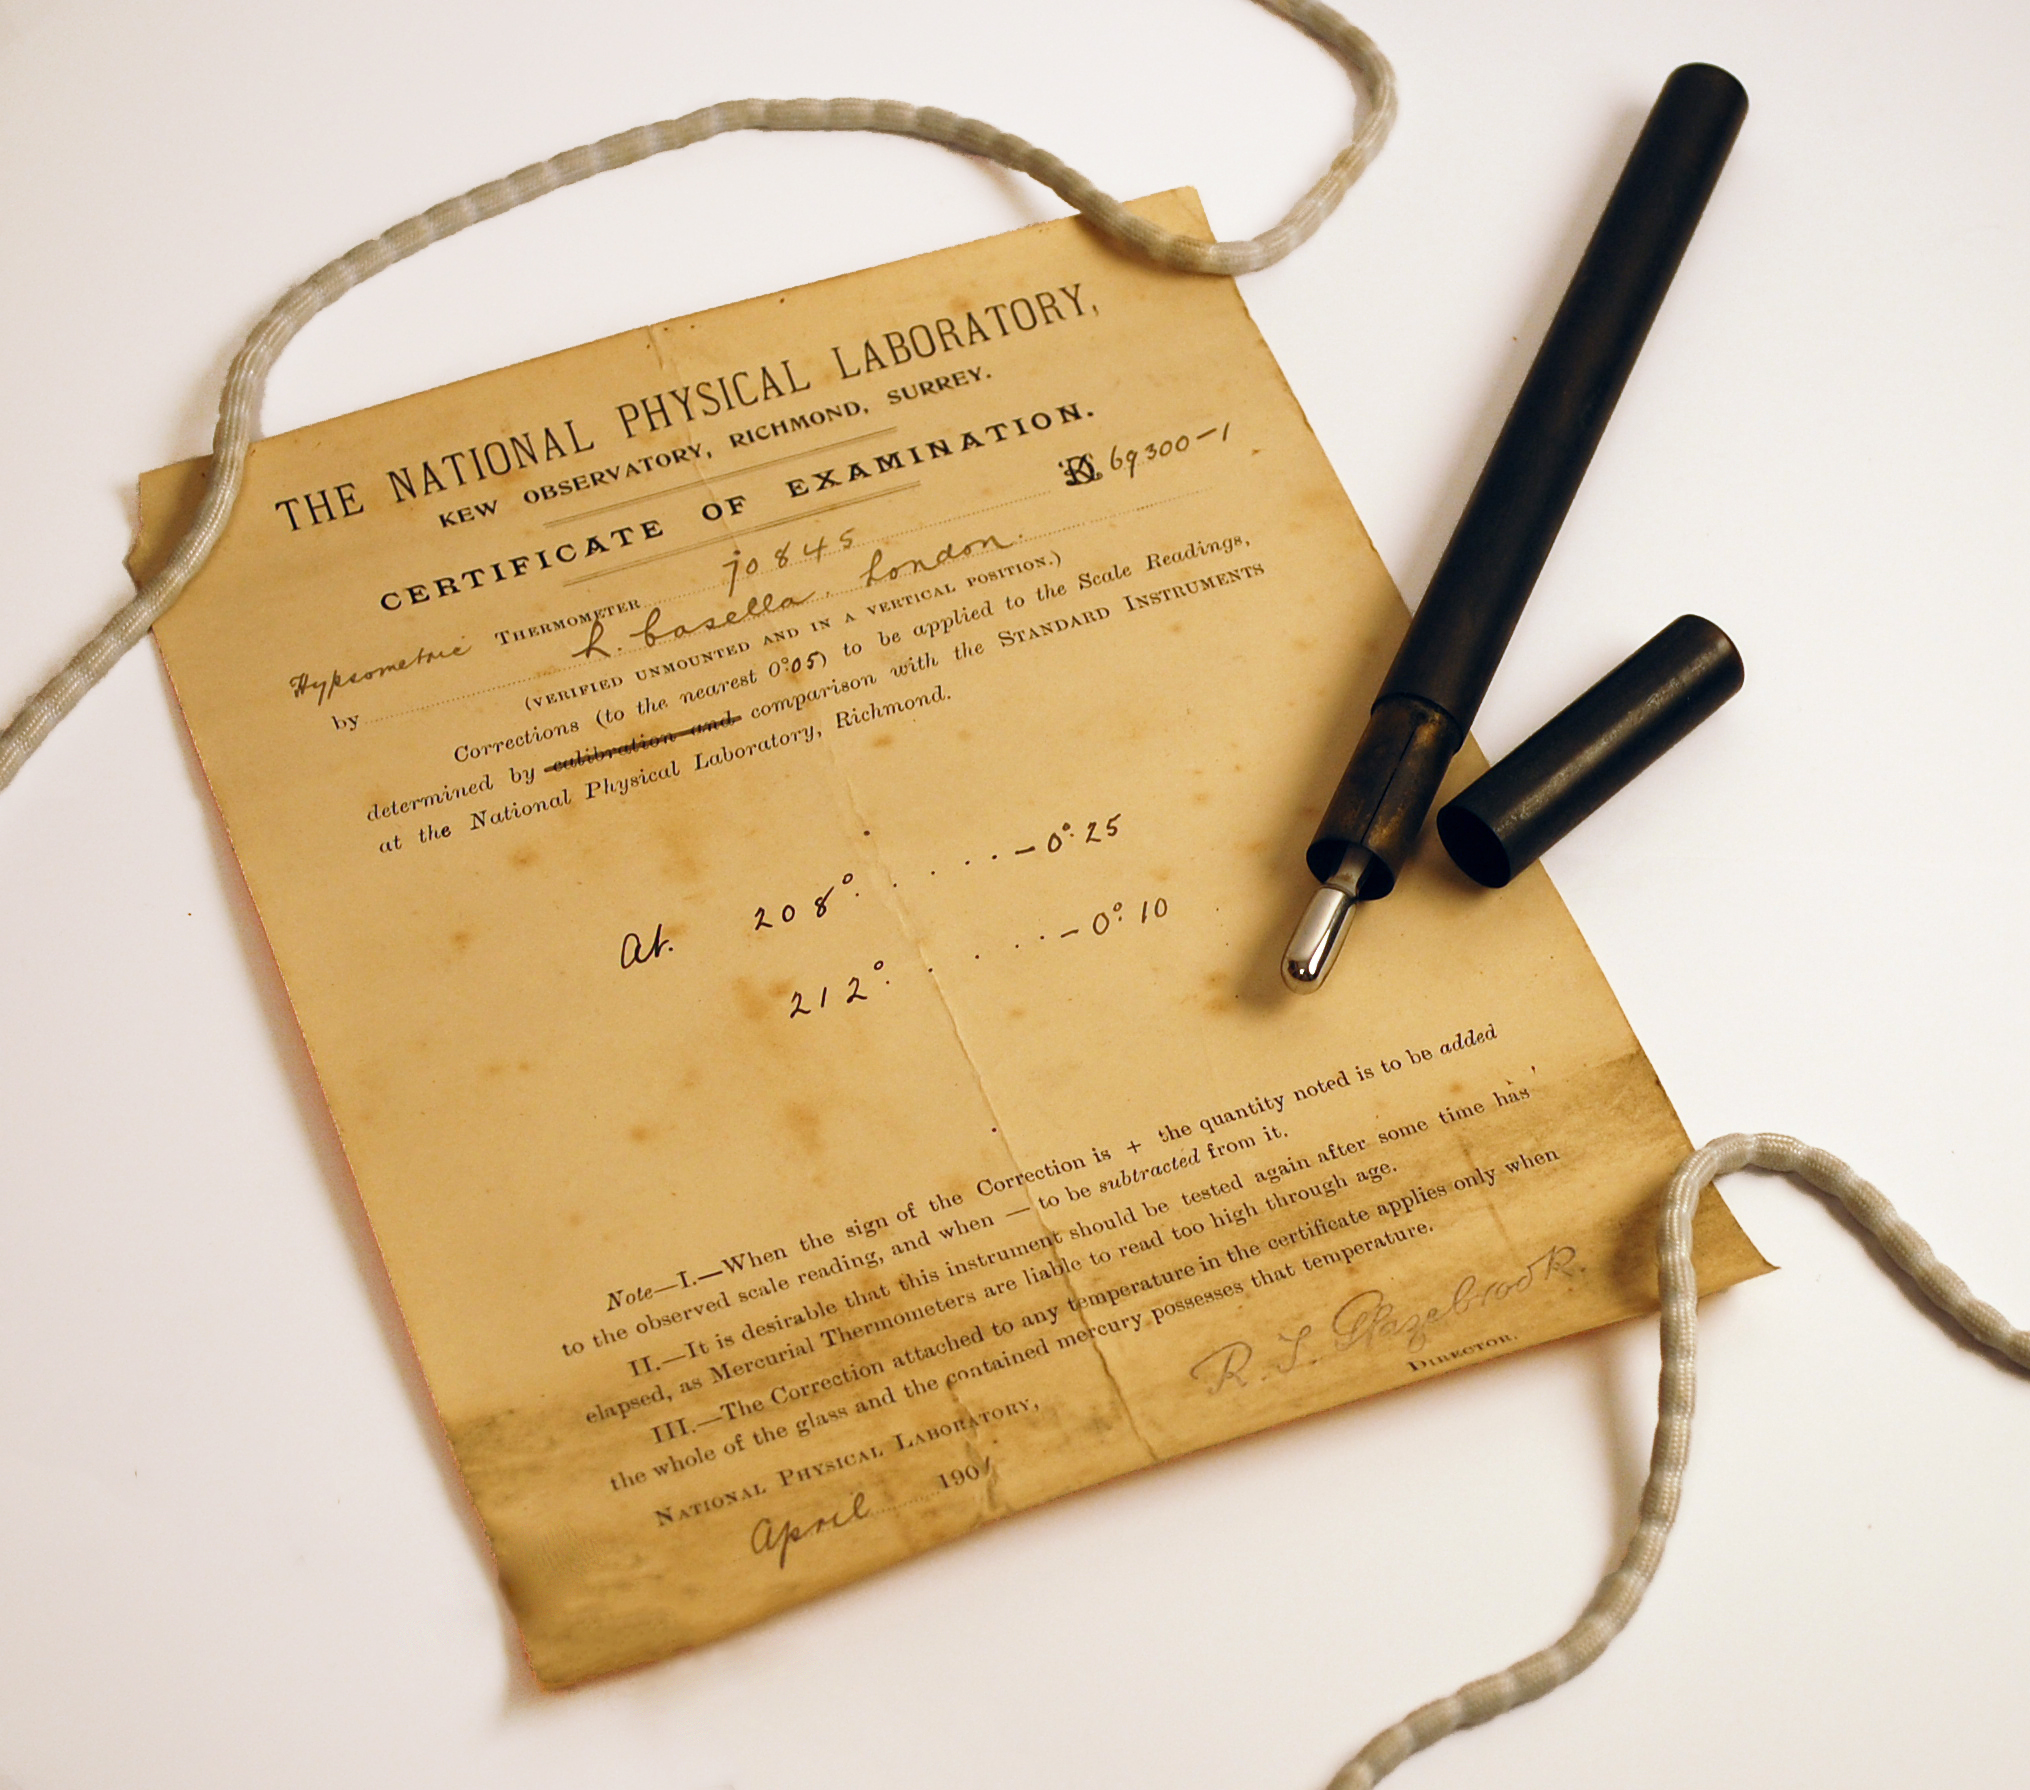 THE NATIONAL PHYSICAL LABORATORY,
KEW OBSERVATORY, RICHMOND, SURREY.
CERTIFICATE OF EXAMINATION.
KO 69300-1
Hypsometric THERMOMETER 70845
by L. Casella. London.
(VERIFIED UNMOUNTED AND IN A VERTICAL POSITION.)
Corrections (to the nearest 0°.05) to be applied to the Scale Readings,
determined by calibration and comparison with the STANDARD INSTRUMENTS
at the National Physical Laboratory, Richmond.
At. 208°. . . . . —0°.25
212°. . . . . —0°.10
Note—I.—When the sign of the Correction is + the quantity noted is to be added
to the observed scale reading, and when — to be subtracted from it.
II.—It is desirable that this instrument should be tested again after some time has
elapsed, as Mercurial Thermometers are liable to read too high through age.
III.—The Correction attached to any temperature in the certificate applies only when
the whole of the glass and the contained mercury possesses that temperature.
R. T. Glazebrook.
DIRECTOR.
NATIONAL PHYSICAL LABORATORY,
April 190